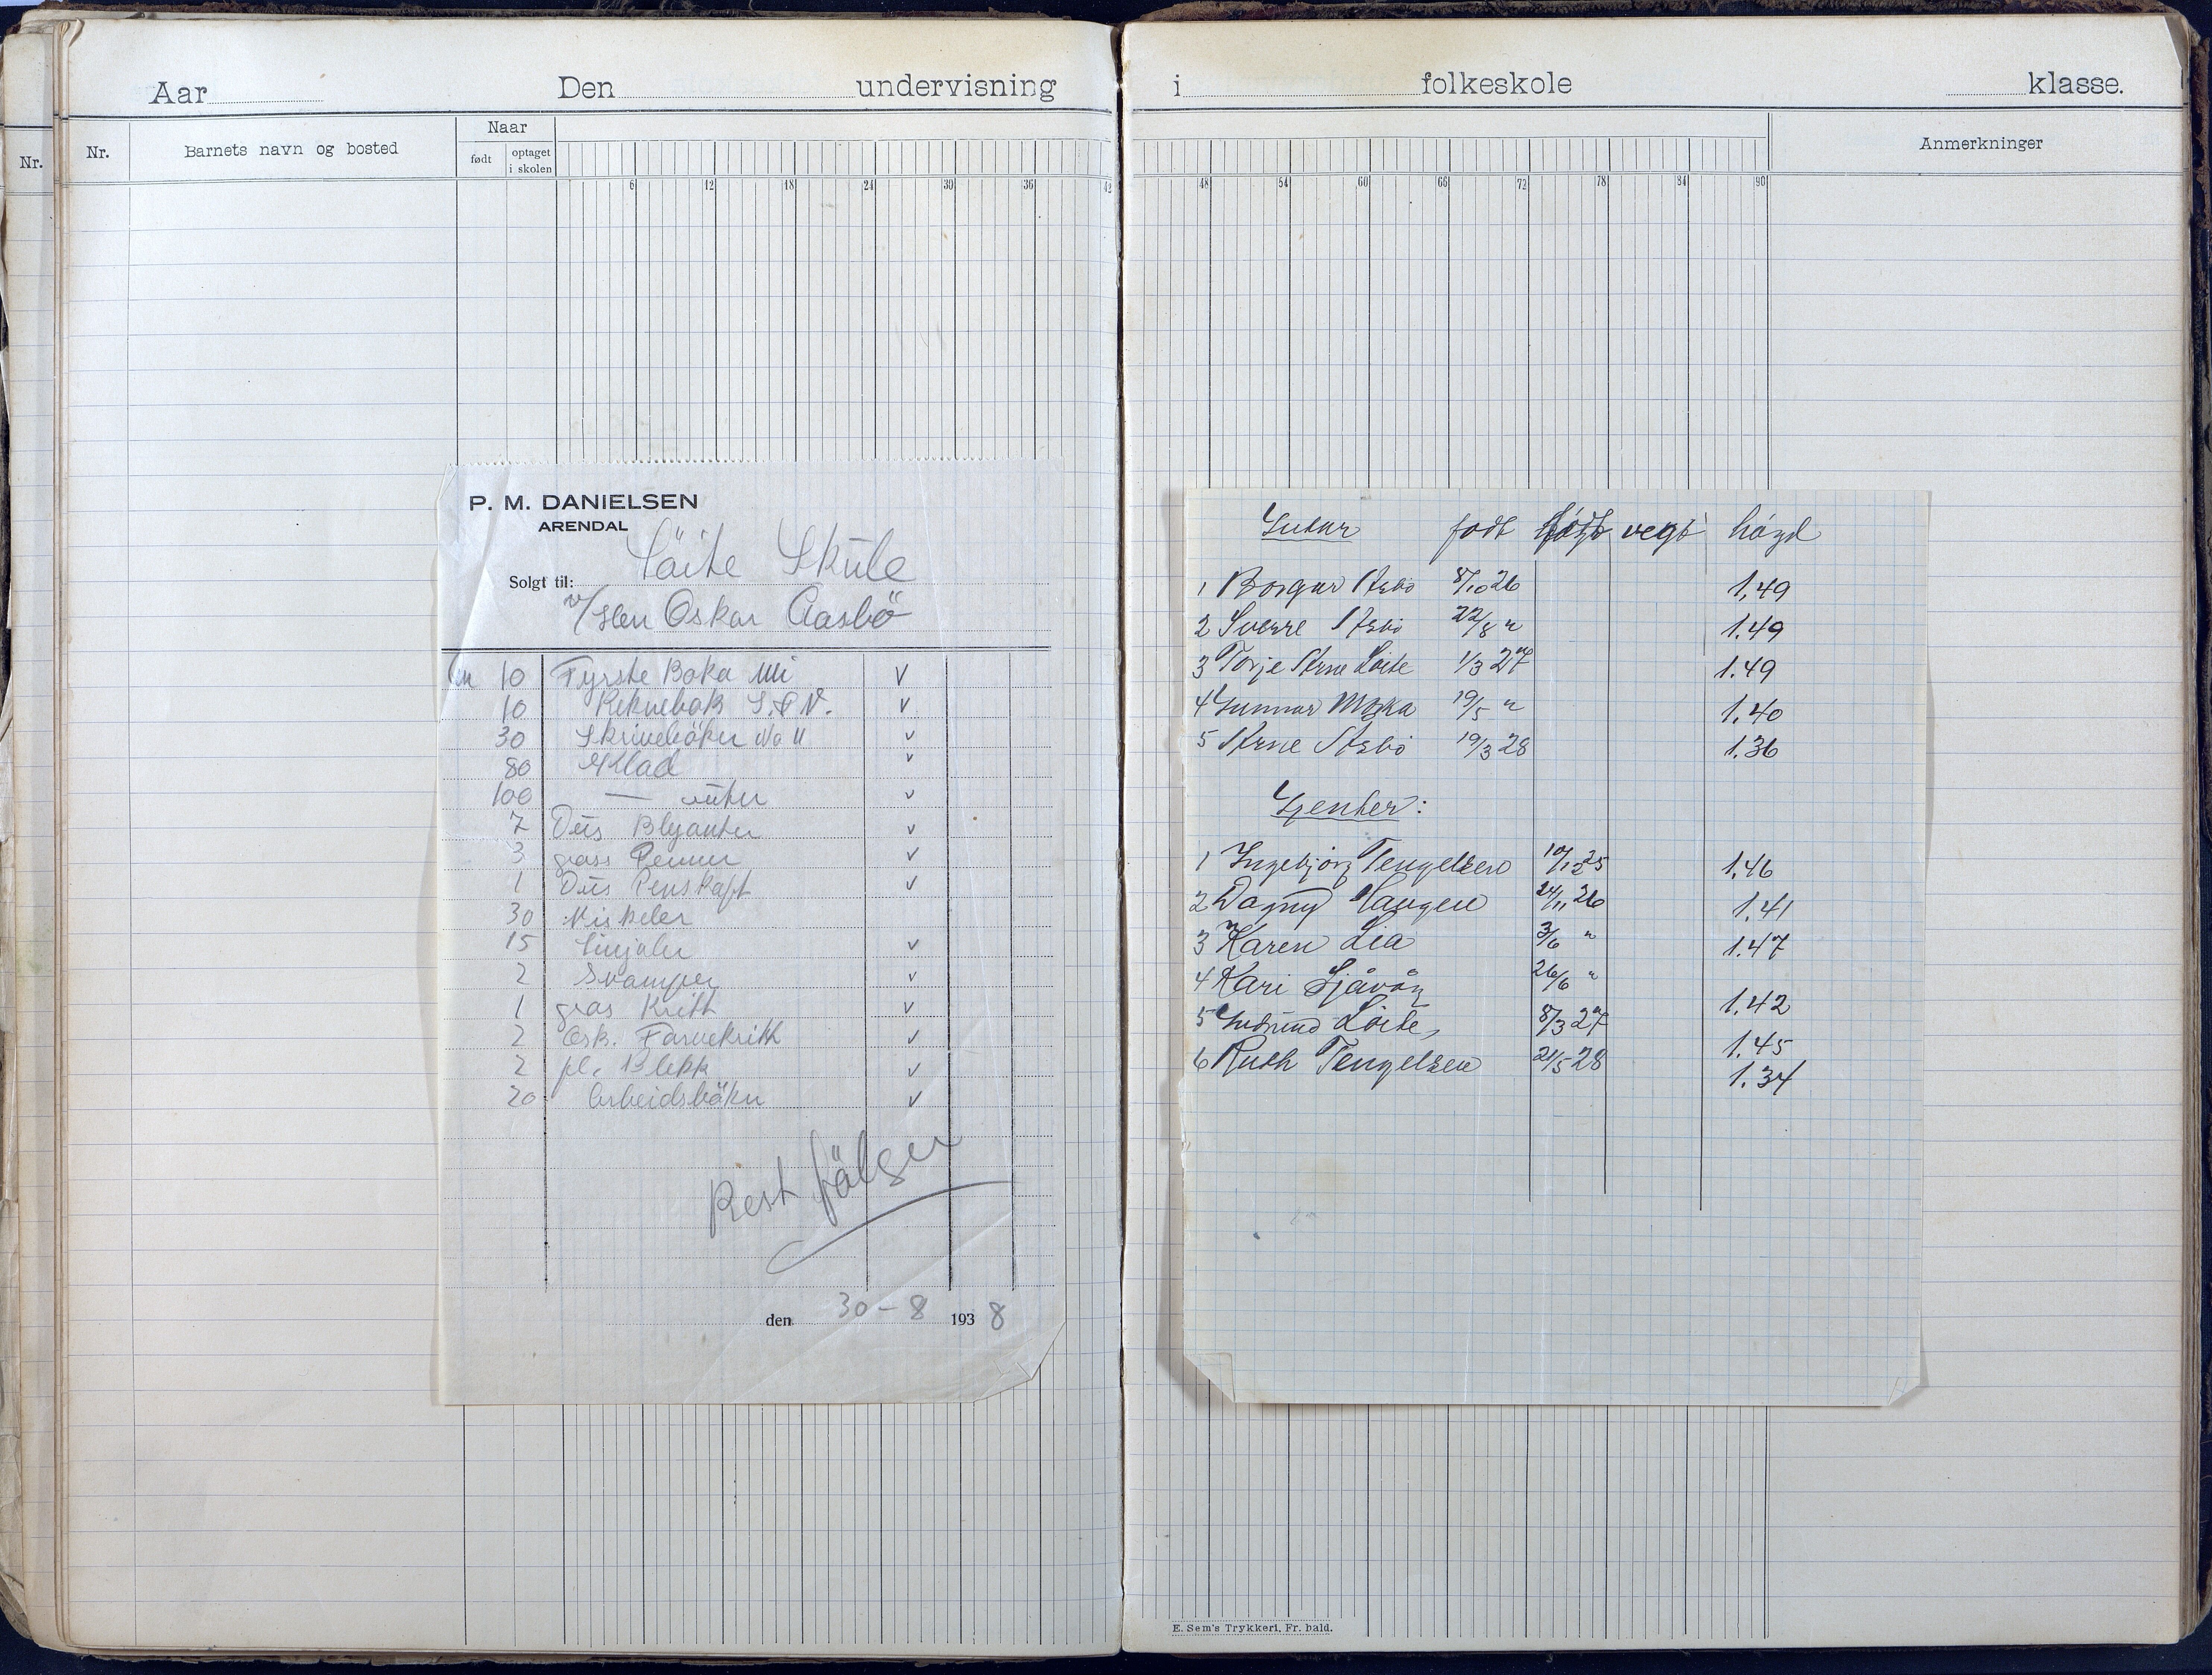 Aar Den undervisning
Nr.
Nr. Barnets navn og bosted Naar
født optaget i skolen
6 12 18 24 30 36 42
P. M. DANIELSEN
ARENDAL
Solgt til: Löite Skule
v/Herr Oskar Aasbö
10 Fyrste Boka Mi V
10 Reknebok V
30 Skrivebøker No 11 V
80 Klad V
100 — V
7 Dus Blyanter V
3 grass Penner V
1 Dus Penskaft V
30 Viskeler
15 Linjaler V
2 Svamper V
1 gras Kritt V
2 Esk. Farvekritt V
2 fl. Blekk V
20 Arbeidsbøker V
Rest følger
den 30-8 1938
i folkeskole klasse.
Anmerkninger
48 54 60 66 72 78 84 90
Gutar født vegt høgd
1 Borgar Åsbø 8/10 26 1,49
2 Sverre Åsbø 22/8 " 1.49
3 Torje Arne Løite 1/3 27 1.49
4 Gunnar Moska 19/5 " 1,40
5 Arne Åsbø 19/3 28 1.36
Gjenter:
1 Ingebjørg Tengelsen 10/12 25 1,46
2 Dagny Haugen 24/11 26 1.41
3 Karen Lia 3/6 " 1.47
4 Kari Sjåvåg 26/6 " 1,42
5 Gudrund Løite, 8/3 27 1.45
6 Ruth Tengelsen 21/5 28 1.34
E. Sem's Trykkeri, Fr. hald.